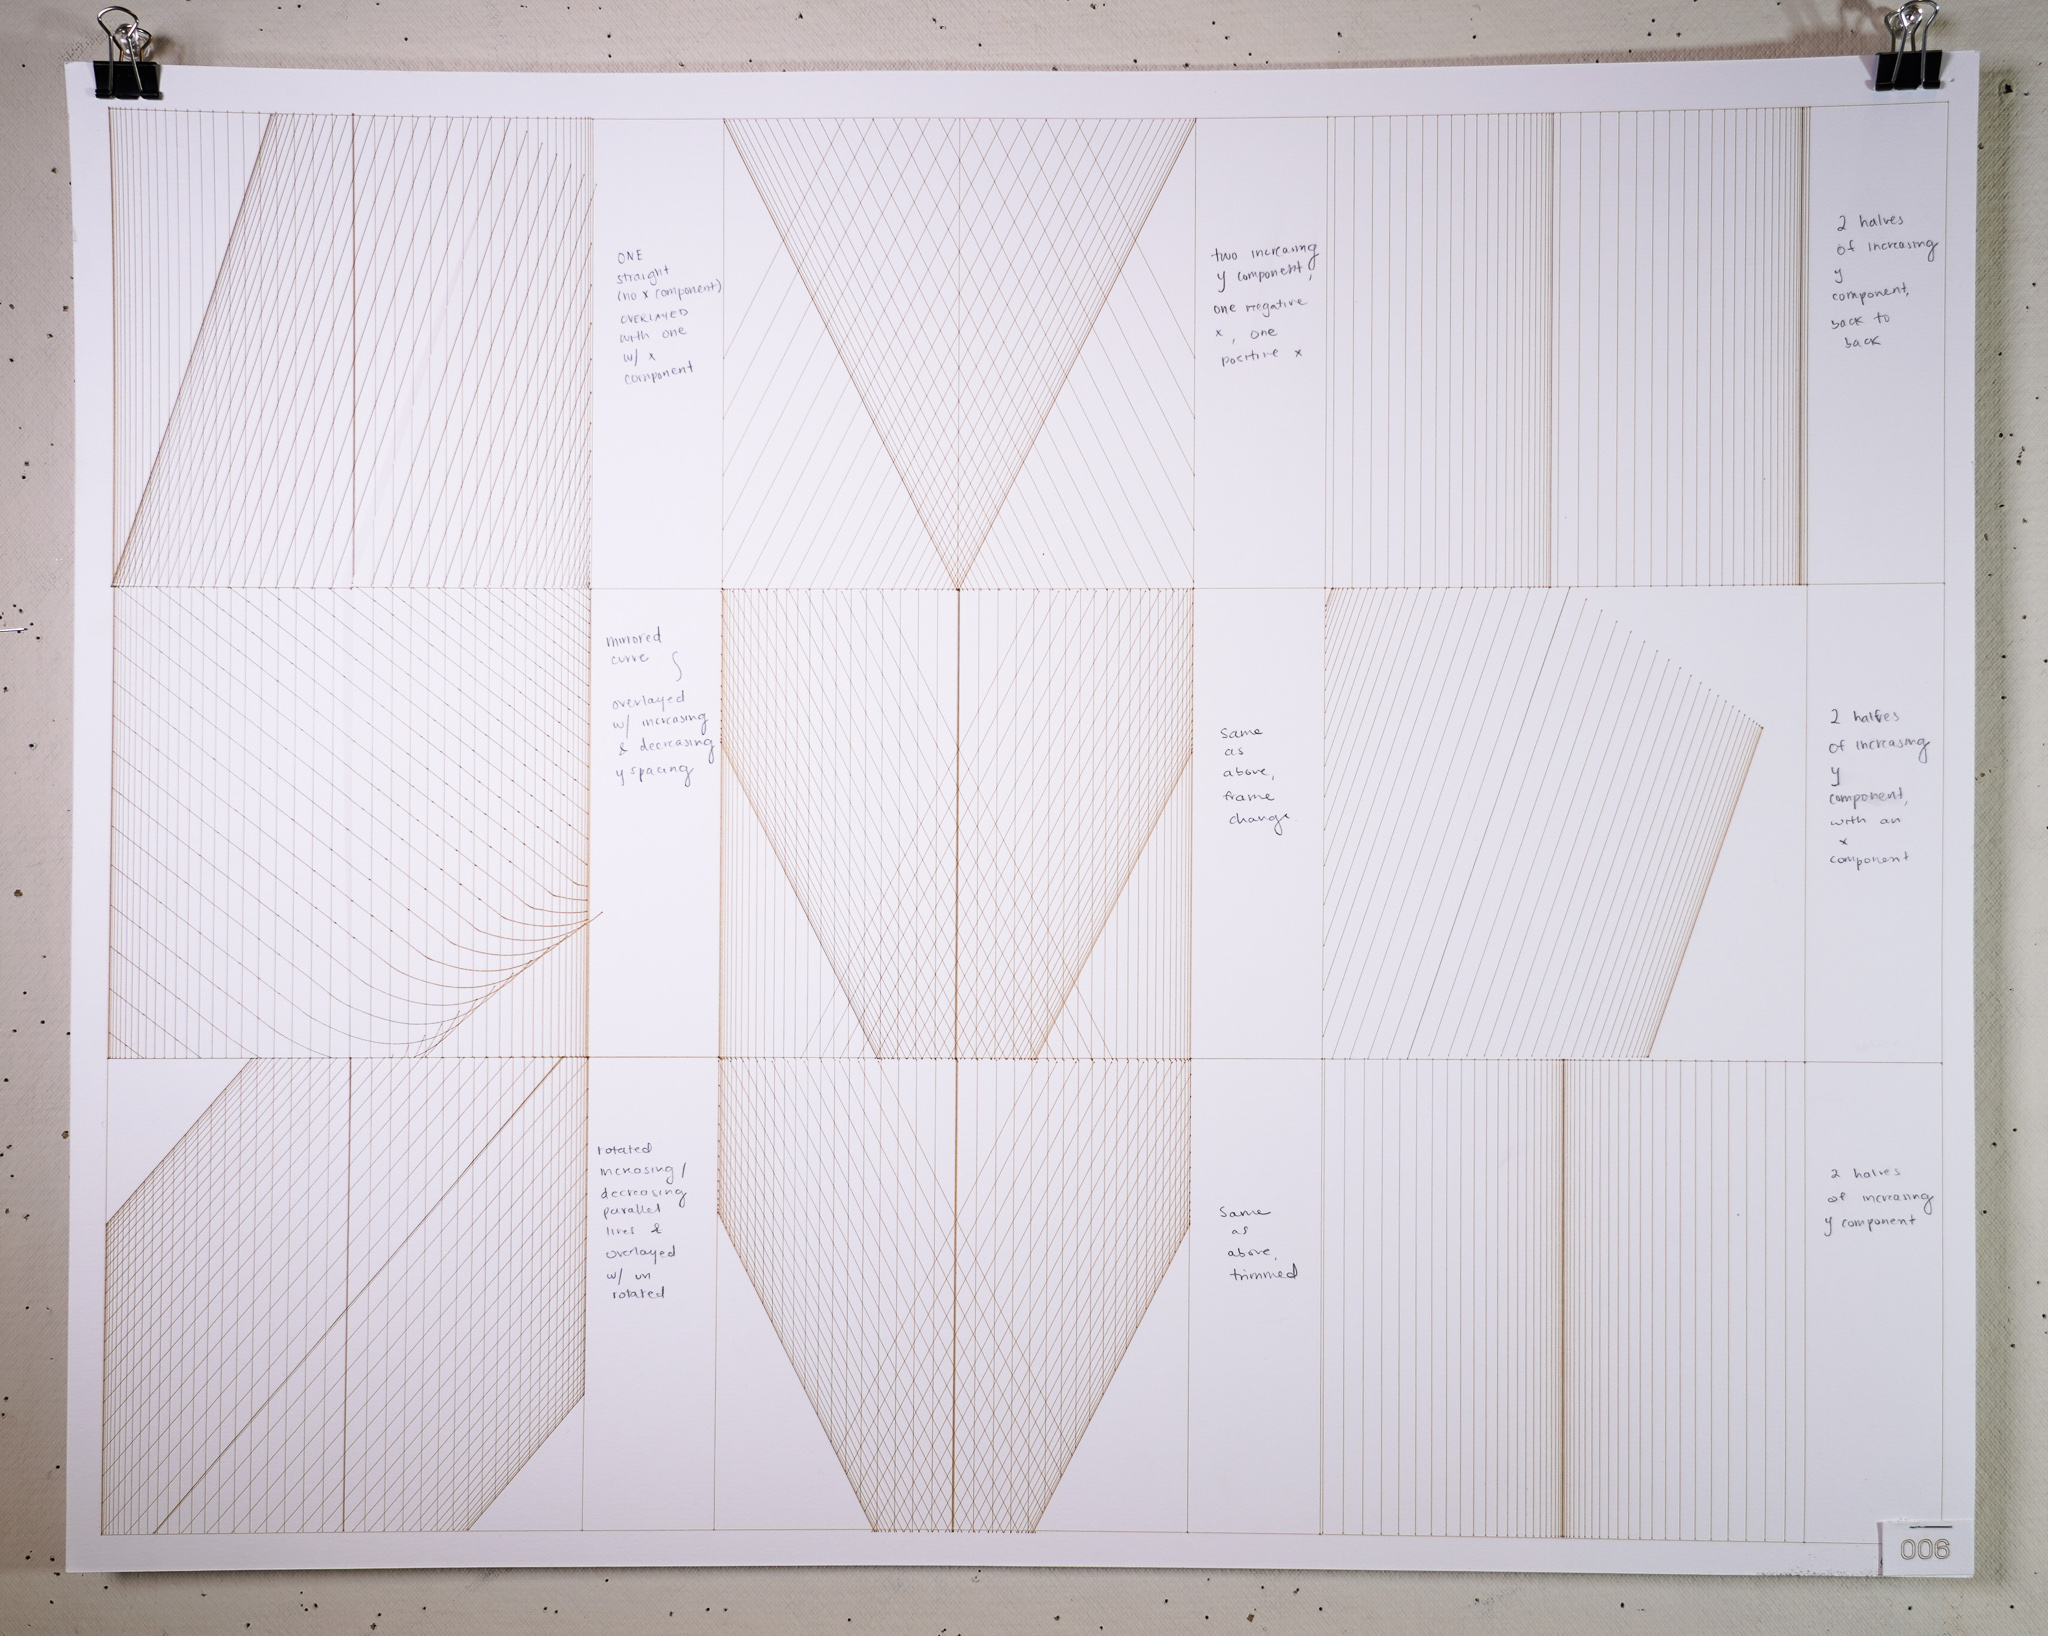 ONE
straight
(no x component)
OVERLAYED
with one
w/ x
component
two increasing
y component,
one negative
x, one
positive x
2 halves
of increasing
y
component,
back to
back
mirrored
curve
overlayed
w/ increasing
& decreasing
y spacing
same
as
above,
frame
change
2 halves
of increasing
y
component,
with an
x
component
rotated
increasing/
decreasing
parallel
lines &
overlayed
w/ un
rotated
same
as
above,
trimmed
2 halves
of increasing
y component
006